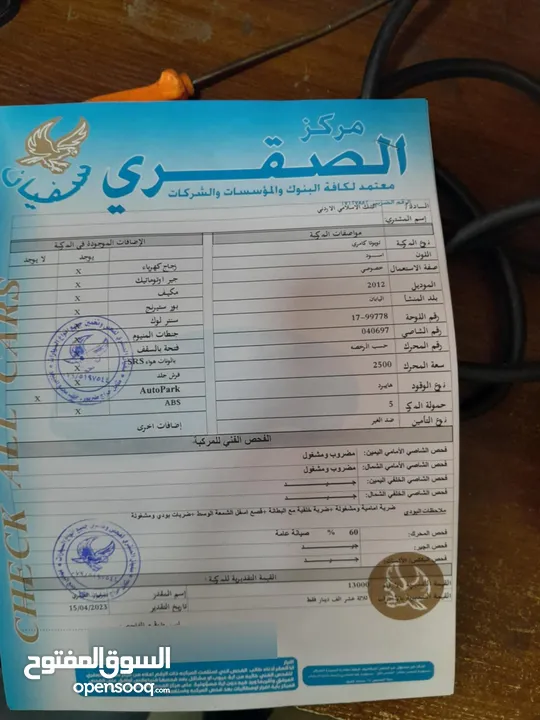 مركز
الصقري
سفيان
معتمد لكافة البنوك والمؤسسات والشركات
CHECK ALL CARS
السادة / البنك الاسلامي الاردني
إسم المشتري:
مواصفات المركبة
نوع المركبة تويوتا كامري
اللون اسود
صفة الاستعمال خصوصي
الموديل 2012
بلد المنشأ اليابان
رقم اللوحة 17-99778
رقم الشاصي 040697
رقم المحرك حسب الرخصه
سعة المحرك 2500
نوع الوقود هايبرد
حمولة المركبة 5
نوع التأمين ضد الغير
الإضافات الموجودة في المركبة
يوجد لا يوجد
زجاج كهرباء X
جير اوتوماتيك X
مكيف X
بور ستيرنج X
سنتر لوك X
جنطات المنيوم
فتحة بالسقف
بالونات هواء SRS
فرش جلد X
AutoPark X
ABS X
إضافات اخرى
الفحص الفني للمركبة
فحص الشاصي الأمامي اليمين: مضروب ومشغول
فحص الشاصي الأمامي الشمال: مضروب ومشغول
فحص الشاصي الخلفي اليمين: جيد
فحص الشاصي الخلفي الشمال: جيد
ملاحظات البودي ضربة امامية ومشغولة +ضربة خلفية مع البطانة +قصع اسفل الشمعة الوسط +ضربات بودي ومشغولة
فحص المحرك: 60 % صيانة عامة
فحص الجير: جيد
جيد
القيمة التقديرية للمركبة :
13000
ثلاثة عشر الف دينار فقط
إسم المقدر
تاريخ التقدير 15/04/2023
السوق المفتوح
opensooq.com
السوق المفتوح
opensooq.com